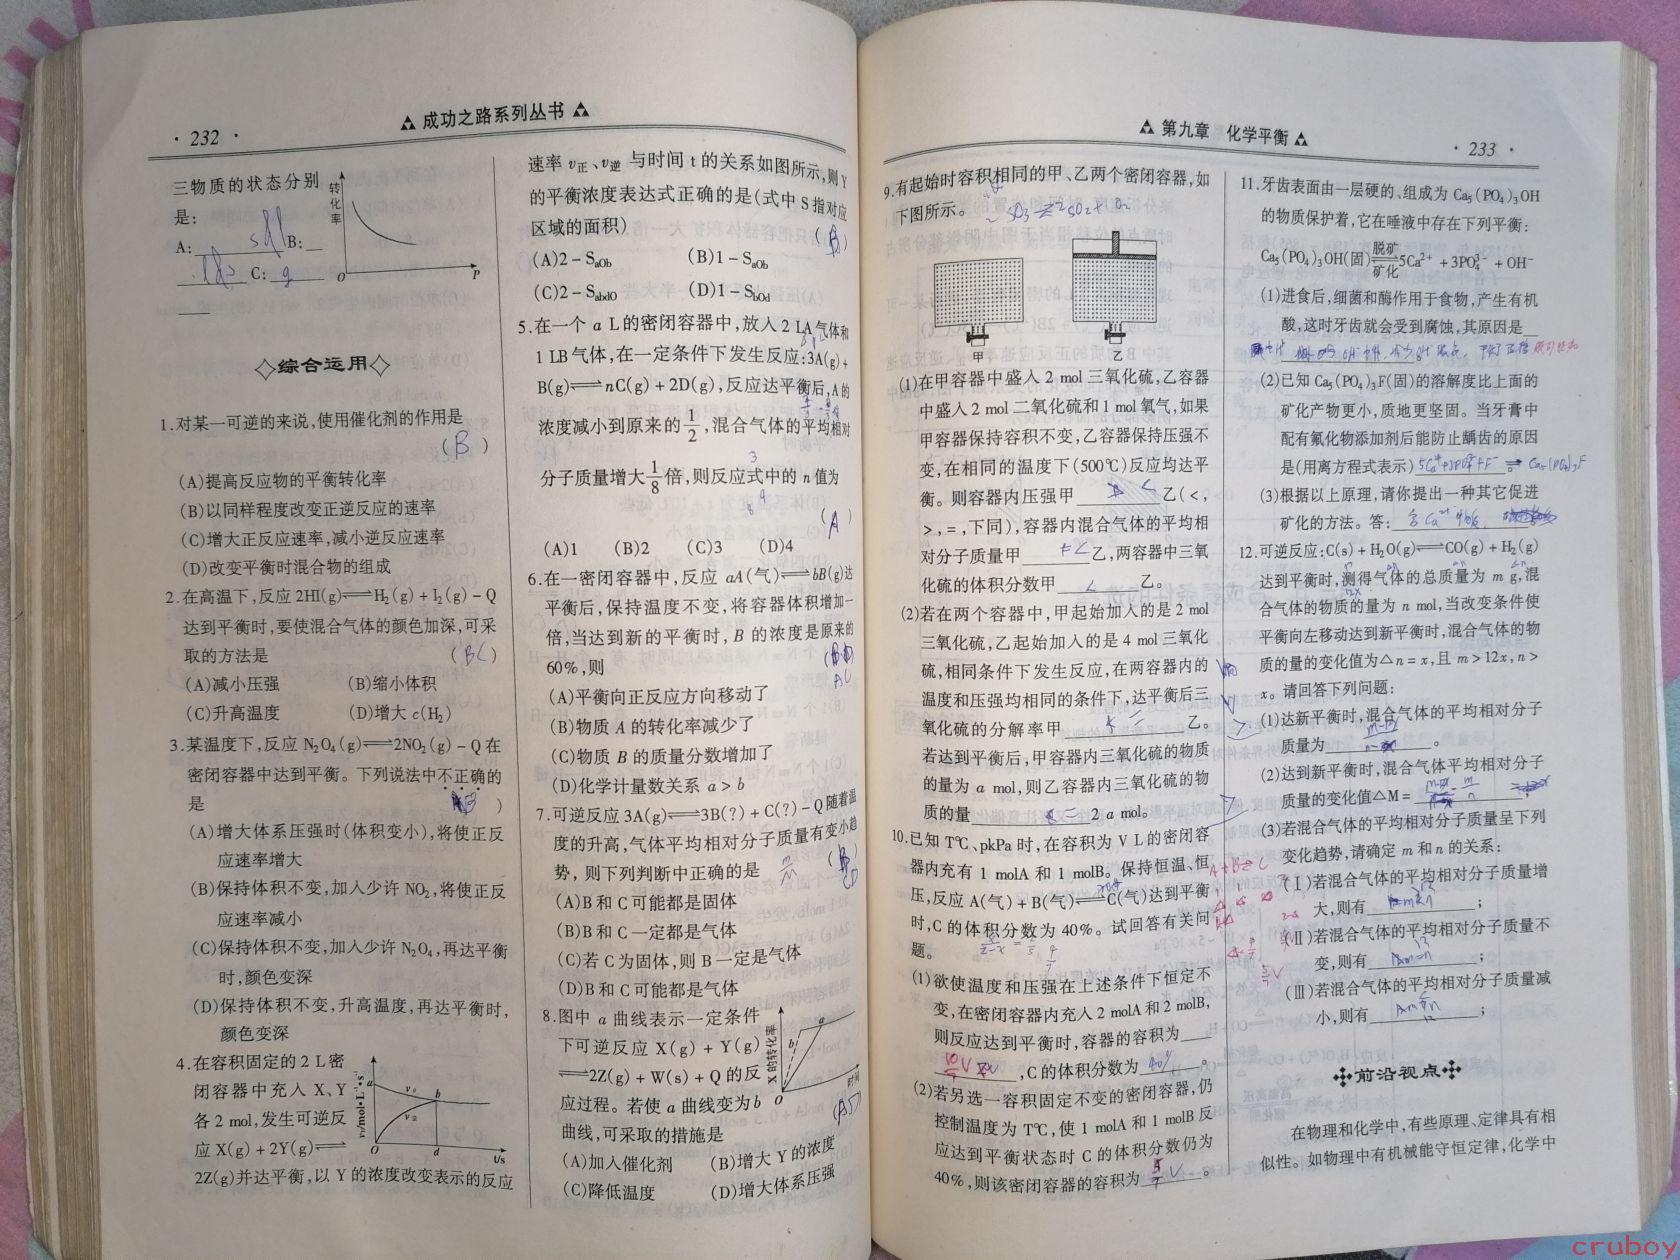 · 232 ·
成功之路系列丛书
三物质的状态分别
是:
A: B:
C: g
转化率
O
P
综合运用
1.对某一可逆的来说,使用催化剂的作用是
(B)
(A)提高反应物的平衡转化率
(B)以同样程度改变正逆反应的速率
(C)增大正反应速率,减小逆反应速率
(D)改变平衡时混合物的组成
2.在高温下,反应 2HI(g)⇌H₂(g) + I₂(g) - Q
达到平衡时,要使混合气体的颜色加深,可采
取的方法是 (BC)
(A)减小压强 (B)缩小体积
(C)升高温度 (D)增大 c(H₂)
3.某温度下,反应 N₂O₄(g)⇌2NO₂(g) - Q 在
密闭容器中达到平衡。下列说法中不正确的
是 )
(A)增大体系压强时(体积变小),将使正反
应速率增大
(B)保持体积不变,加入少许 NO₂,将使正反
应速率减小
(C)保持体积不变,加入少许 N₂O₄,再达平衡
时,颜色变深
(D)保持体积不变,升高温度,再达平衡时,
颜色变深
4.在容积固定的 2 L 密
闭容器中充入 X、Y
各 2 mol,发生可逆反
应 X(g) + 2Y(g)⇌
2Z(g)并达平衡,以 Y 的浓度改变表示的反应
v/mol·L⁻¹·s⁻¹
a
b
O
d
t/s
速率 v正、v逆 与时间 t 的关系如图所示,则 Y
的平衡浓度表达式正确的是(式中 S 指对应
区域的面积) (B)
(A)2 - SaOb (B)1 - SaOb
(C)2 - SabdO (D)1 - SbOd
5.在一个 a L 的密闭容器中,放入 2 LA 气体和
1 LB 气体,在一定条件下发生反应:3A(g) +
B(g)⇌nC(g) + 2D(g),反应达平衡后,A 的
浓度减小到原来的 1/2 ,混合气体的平均相对
分子质量增大 1/8 倍,则反应式中的 n 值为
(A)
(A)1 (B)2 (C)3 (D)4
6.在一密闭容器中,反应 aA(气)⇌bB(g)达
平衡后,保持温度不变,将容器体积增加一
倍,当达到新的平衡时,B 的浓度是原来的
60%,则
AC
(A)平衡向正反应方向移动了
(B)物质 A 的转化率减少了
(C)物质 B 的质量分数增加了
(D)化学计量数关系 a > b
7.可逆反应 3A(g)⇌3B(?) + C(?) - Q 随着温
度的升高,气体平均相对分子质量有变小趋
势,则下列判断中正确的是
(A)B 和 C 可能都是固体
(B)B 和 C 一定都是气体
(C)若 C 为固体,则 B 一定是气体
(D)B 和 C 可能都是气体
8.图中 a 曲线表示一定条件
下可逆反应 X(g) + Y(g)
⇌2Z(g) + W(s) + Q 的反
应过程。若使 a 曲线变为 b
曲线,可采取的措施是
(A)加入催化剂 (B)增大 Y 的浓度
(C)降低温度 (D)增大体系压强
X 的转化率
a
b
O
时间
第九章 化学平衡
· 233 ·
9.有起始时容积相同的甲、乙两个密闭容器,如
下图所示。
SO₃⇌2SO₂+O₂
甲 乙
(1)在甲容器中盛入 2 mol 三氧化硫,乙容器
中盛入 2 mol 二氧化硫和 1 mol 氧气,如果
甲容器保持容积不变,乙容器保持压强不
变,在相同的温度下(500℃)反应均达平
衡。则容器内压强甲 < 乙(<,
>,=,下同),容器内混合气体的平均相
对分子质量甲 < 乙,两容器中三氧
化硫的体积分数甲 < 乙。
(2)若在两个容器中,甲起始加入的是 2 mol
三氧化硫,乙起始加入的是 4 mol 三氧化
硫,相同条件下发生反应,在两容器内的
温度和压强均相同的条件下,达平衡后三
氧化硫的分解率甲 = 乙。
若达到平衡后,甲容器内三氧化硫的物质
的量为 a mol,则乙容器内三氧化硫的物
质的量 = 2 a mol。
10.已知 T℃、pkPa 时,在容积为 V L 的密闭容
器内充有 1 molA 和 1 molB。保持恒温、恒
压,反应 A(气) + B(气)⇌C(气)达到平衡
时,C 的体积分数为 40%。试回答有关问
题。
(1)欲使温度和压强在上述条件下恒定不
变,在密闭容器内充入 2 molA 和 2 molB,
则反应达到平衡时,容器的容积为
10/7 V ,C 的体积分数为 40% 。
(2)若另选一容积固定不变的密闭容器,仍
控制温度为 T℃,使 1 molA 和 1 molB 反
应达到平衡状态时 C 的体积分数仍为
40%,则该密闭容器的容积为 5/7 V 。
11.牙齿表面由一层硬的、组成为 Ca₅(PO₄)₃OH
的物质保护着,它在唾液中存在下列平衡:
Ca₅(PO₄)₃OH(固) 脱矿⇌矿化 5Ca²⁺ + 3PO₄³⁻ + OH⁻
(1)进食后,细菌和酶作用于食物,产生有机
酸,这时牙齿就会受到腐蚀,其原因是
(2)已知 Ca₅(PO₄)₃F(固)的溶解度比上面的
矿化产物更小,质地更坚固。当牙膏中
配有氟化物添加剂后能防止龋齿的原因
是(用离方程式表示) 5Ca²⁺+3PO₄³⁻+F⁻ ⇌ Ca₅(PO₄)₃F 。
(3)根据以上原理,请你提出一种其它促进
矿化的方法。答: 含Ca²⁺物质
12.可逆反应:C(s) + H₂O(g)⇌CO(g) + H₂(g)
达到平衡时,测得气体的总质量为 m g,混
合气体的物质的量为 n mol,当改变条件使
平衡向左移动达到新平衡时,混合气体的物
质的量的变化值为△n = x,且 m > 12x,n >
x。请回答下列问题:
(1)达新平衡时,混合气体的平均相对分子
质量为 。
(2)达到新平衡时,混合气体平均相对分子
质量的变化值△M = ;
(3)若混合气体的平均相对分子质量呈下列
变化趋势,请确定 m 和 n 的关系:
(Ⅰ)若混合气体的平均相对分子质量增
大,则有 ;
(Ⅱ)若混合气体的平均相对分子质量不
变,则有 ;
(Ⅲ)若混合气体的平均相对分子质量减
小,则有 ;
前沿视点
在物理和化学中,有些原理、定律具有相
似性。如物理中有机械能守恒定律,化学中
cruboy